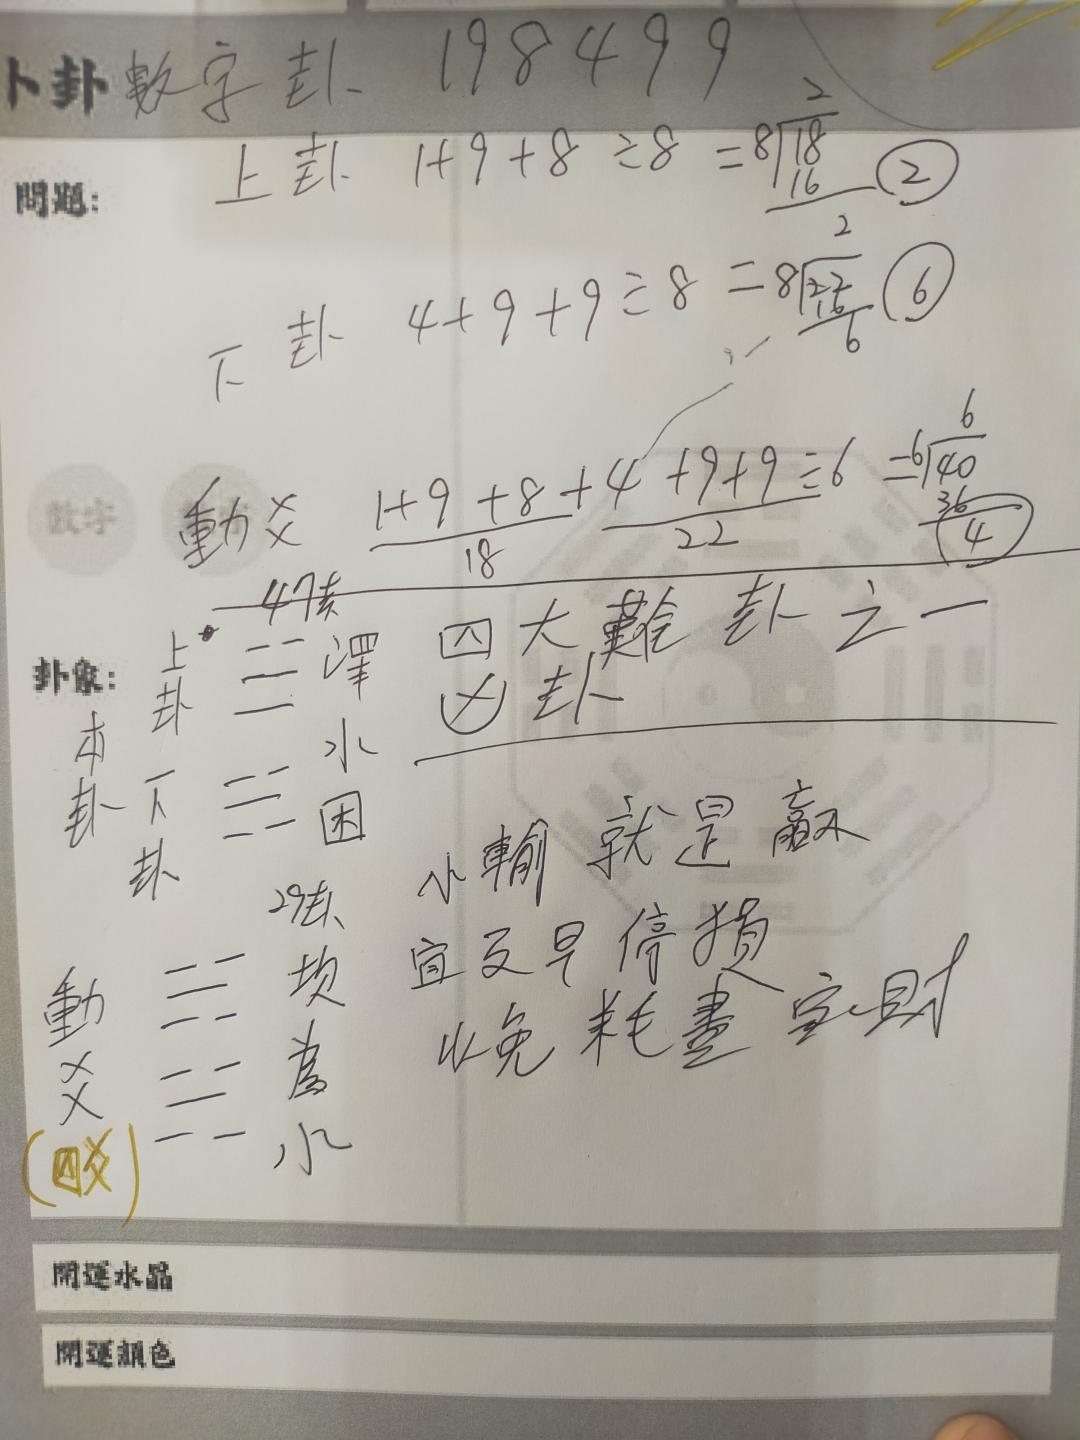 卜卦 數字卦 198499
上卦 1+9+8÷8 = 8 18 2 16 2 ②
問題:
下卦 4+9+9÷8 = 8 22 2 16 6 ⑥
動爻 1+9+8+4+9+9÷6 = 6 40 6 36 ④
18 22
數字
47卦
卦象:
本卦
上卦
下卦
澤水困
四大難卦之一
凶卦
小輸就是贏
宜及早停損
以免耗盡家財
29卦
動爻
(四爻)
坎為水
開運水晶
開運顏色